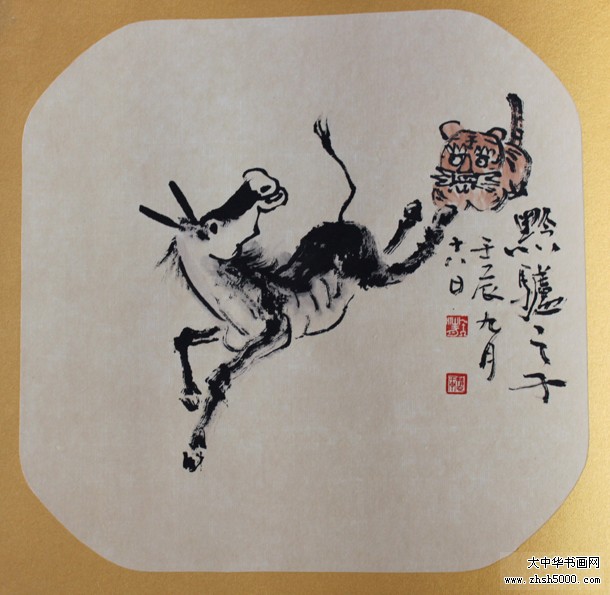 黔驢之子
壬辰九月
十六日
大中华书画网
www.zhsh5000.com